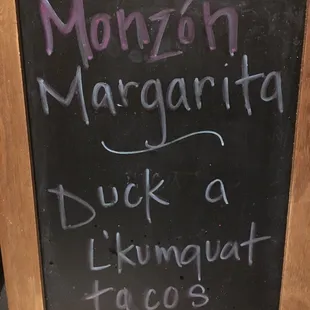 Monzón
Margarita
Duck a
L'kumquat
tacos